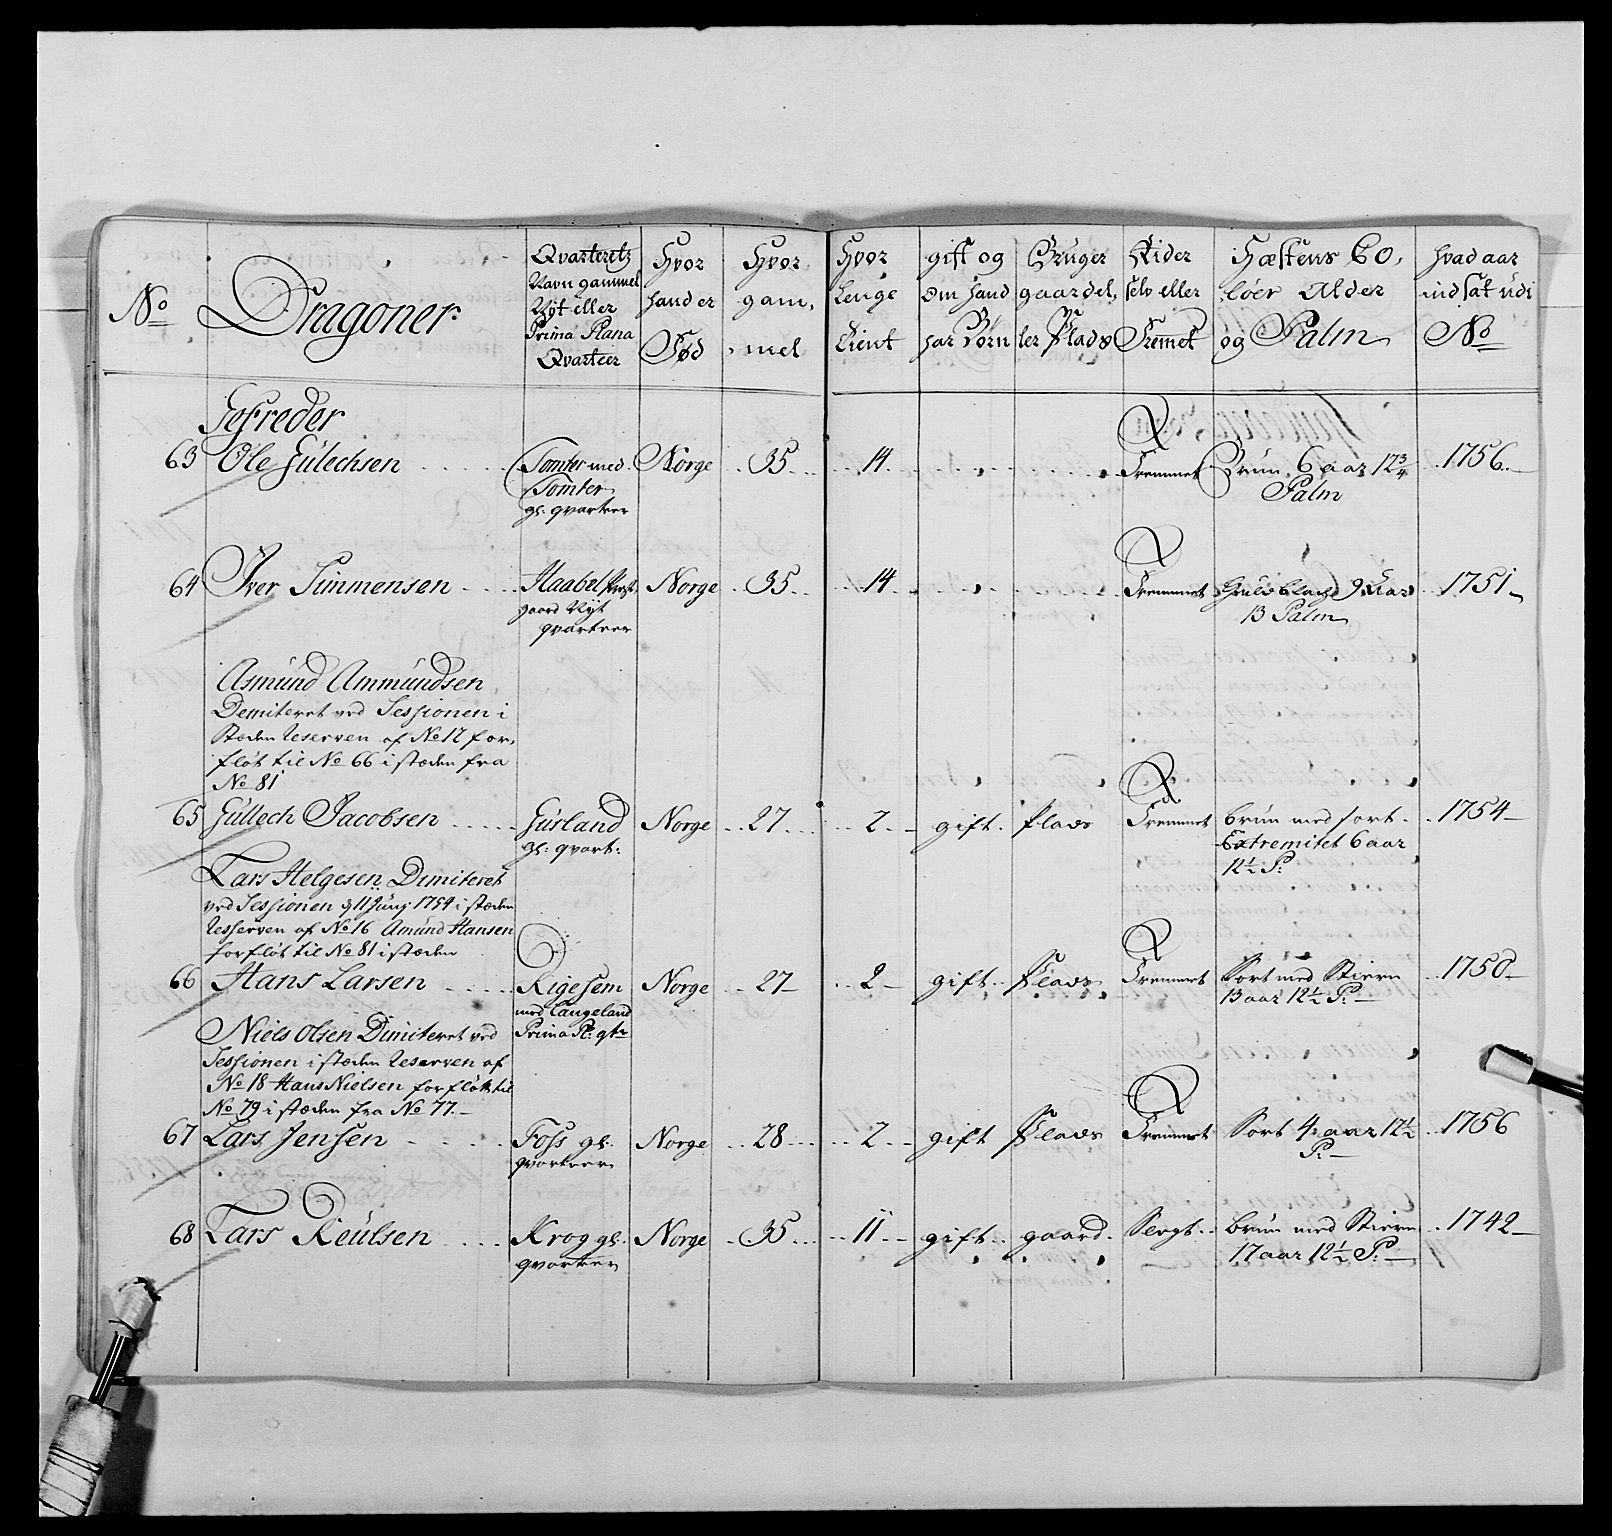 No
Dragoner
Qvarteretz Navn gammel Nyt eller Prima Plana Qvarteer
Hvor hand er Fød
Hvor gammel
Hvor Lenge Tient
gift og Om hand har Børn
Bruger gaard eller Plads
Rider selv eller Fremet
Hæstens Coløer Alder og Palm
hvad aar indsat udi No
Gefreder
63 Ole Gulechsen Tomter med Tomter gl: qvarteer Norge 35 14 R Fremmet Brun 6 aar 12 3/4 Palm 1756
64 Iver Simmensen Haabel præst gaard Nyt qvarteer Norge 35 14 R Fremmet Guulblach 9 Aar 13 Palm 1751
Asmund Ammundsen
Demiteret ved Sessionen i
Stæden Reserven af No 12 for,
fløt til No 66 i stæden fra
No 81
65 Gullech Jacobsen Gusland gl: qvart: Norge 27 2 gift Plads R Fremmet brun med sort Extremitet 6 aar 12 1/2 P: 1754
Lars Helgesen Dimiteret
ved Sessionen d 11 Junj 1754 i stæden
Resserven af No 16 Amund Hansen
forfløt til No 81 i stæden
66 Hans Larsen Rigesem med Langeland Prima Pl: qtr Norge 27 2 gift Plads R Fremmet Sort med Stiern 13 aar 12 1/2 P: 1750
Niels Olsen Dimiteret ved
Sessionen i stæden Reserven af
No 18 Hans Nielsen forfløt til
No 79 i stæden fra No 77.
67 Lars Jensen Foss gl: qvarteer Norge 28 2 gift Plads R Fremmet Sort 4 aar 12 1/2 P: 1756
68 Lars Reulsen Krog gl: qvarteer Norge 35 11 gift gaard Sergt. brun med Stiern 17 aar 12 1/2 P: 1742